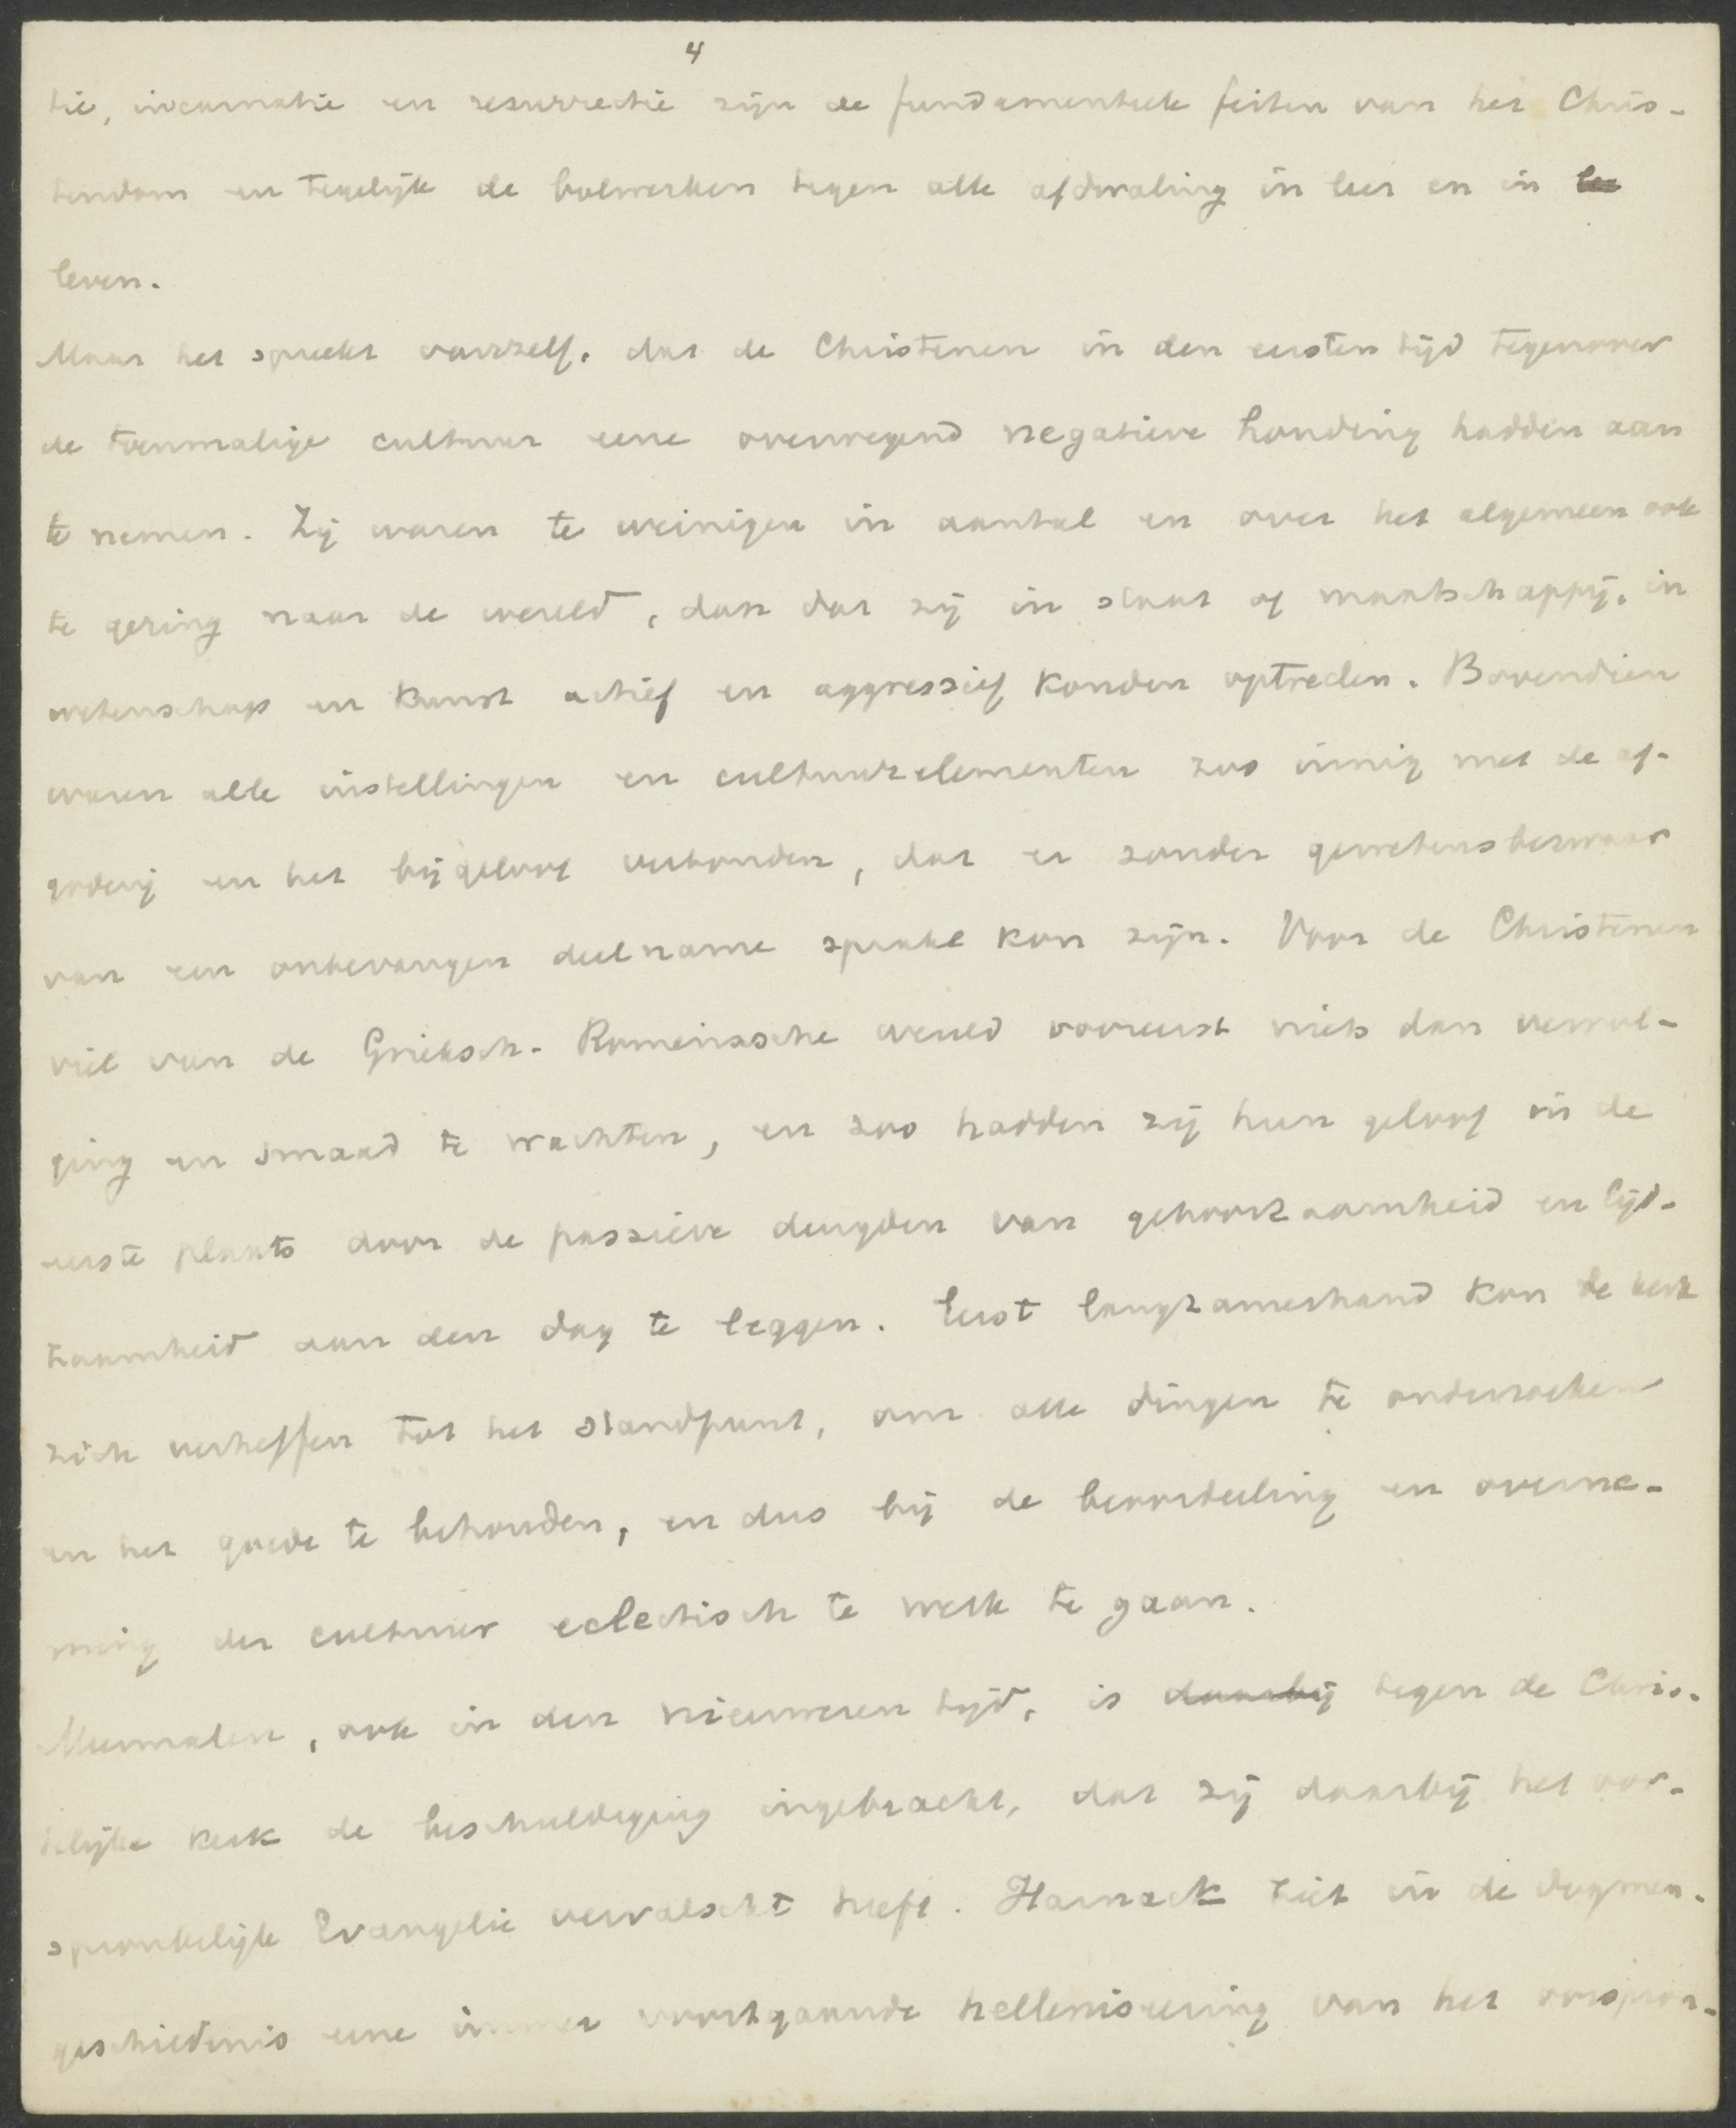 4
tie, incarnatie en resurrectie zijn de fundamenteele feiten van het Chris-
tendom en tegelijk de bolwerken tegen alle afdwaling in leer en in
leven.
Maar het spreekt vanzelf, dat de Christenen in den eersten tijd tegenover
de toenmalige cultuur eene overwegend negatieve houding hadden aan
te nemen. Zij waren te weinigen in aantal en over het algemeen ook
te gering naar de wereld, dan dat zij in staat of maatschappij, in
wetenschap en kunst actief en aggressief konden optreden. Bovendien
waren alle instellingen en cultuurelementen zoo innig met de af-
goderij en het bijgeloof verbonden, dat er zonder gewetensbezwaar
van een onbevangen deelname sprake kon zijn. Voor de Christenen
viel van de Grieksch-Romeinssche wereld vooreerst niets dan vervol-
ging en smaad te wachten, en zoo hadden zij hun geloof in de
eerste plaats door de passieve deugden van gehoorzaamheid en lijd-
zaamheid aan den dag te leggen. Eerst langzamerhand kon de kerk
zich verheffen tot het standpunt, om alle dingen te onderzoeken
en het goede te behouden, en dus bij de beoordeeling en overne-
ming der cultuur eclectisch te werk te gaan.
Meermalen, ook in den nieuweren tijd, is daarbij tegen de Chris-
telijke kerk de beschuldiging ingebracht, dat zij daarbij het oor-
spronkelijk Evangelie vervalscht heeft. Harnack ziet in de dogmen-
geschiedenis eene immer voortgaande helleniseering van het oorspron-